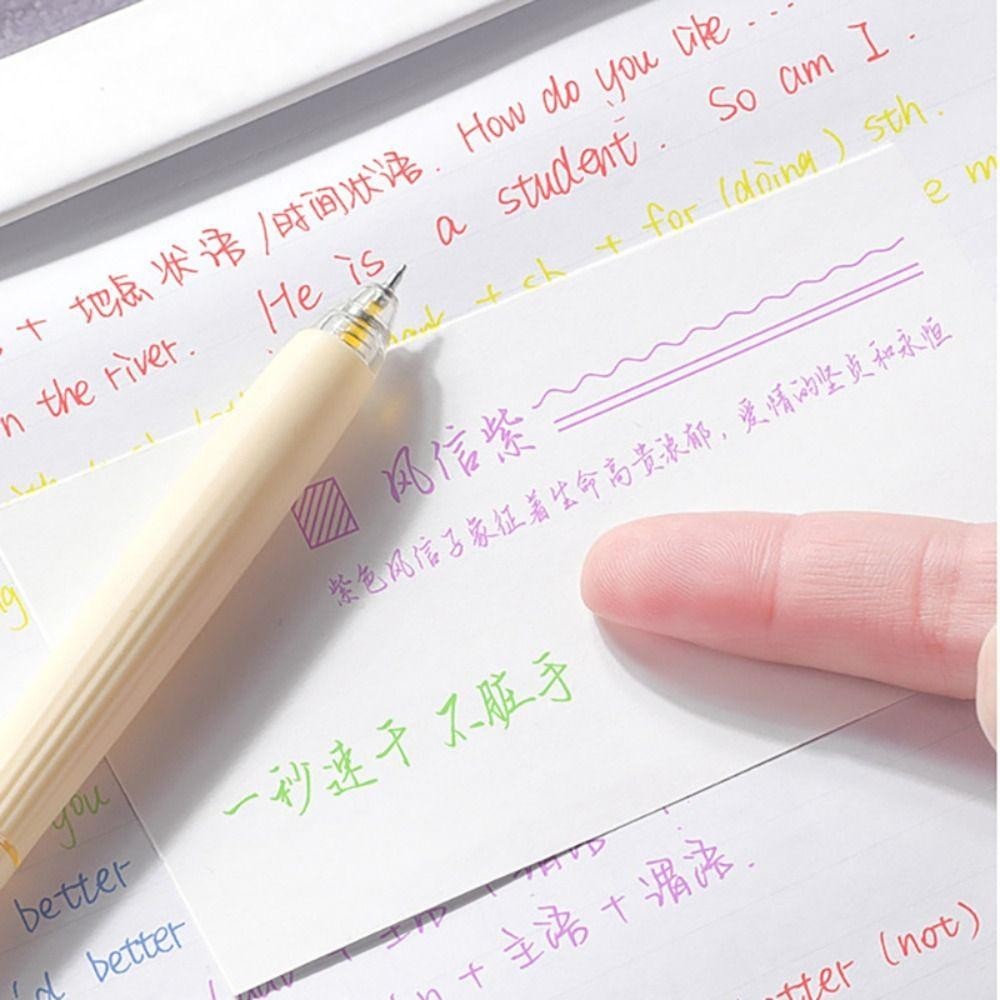 How do you like ...
+ 地点状语/时间状语. He is a student. So am I.
n the river.
+ sb + for (doing) sth.
风信紫
紫色风信子象征着生命高贵浓郁，爱情的坚贞和永恒
一秒速干 不脏手
you
better
'd better
+ 主语 + 谓语.
(not)